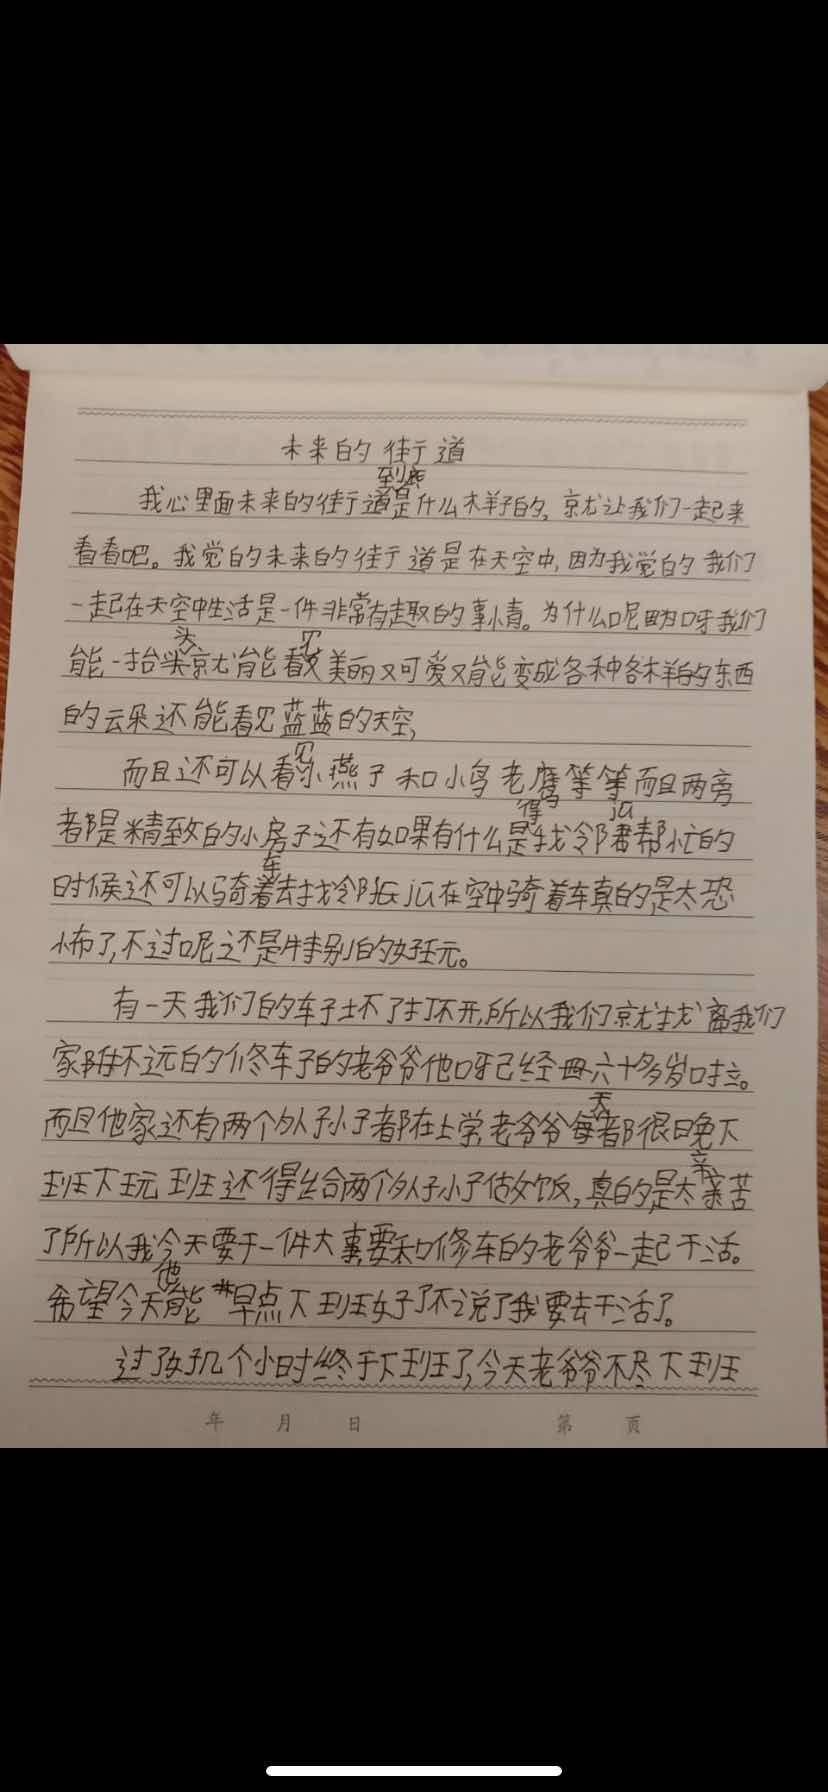 未来的街道
我心里面未来的街道到底是什么样子的，就让我们一起来
看看吧。我觉的未来的街道是在天空中，因为我觉的我们
一起在天空中生活是一件非常有趣的事情。为什么呢因为呀我们
能一抬头就能看见美丽又可爱又能变成各种各样的东西
的云朵还能看见蓝蓝的天空，
而且还可以看见小燕子和小鸟老鹰等等而且两旁
都是精致的小房子还有如果有什么是得找邻居jū帮忙的
时候还可以骑着车去找邻居jū在空中骑着车真的是太恐
怖了，不过呢还是特别的好玩。
有一天我们的车子坏了打不开，所以我们就找离我们
家附不远的修车子的老爷爷他呀已经六十多岁啦。
而且他家还有两个外孙小子都在上学，老爷爷每天都很晚下
班下班还得给两个外孙小子做饭，真的是太辛苦
了所以我今天要干一件大事要和修车的老爷爷一起干活。
希望今天他能早点下班好了不说了我要去干活了。
过了好几个小时终于下班了，今天老爷爷不尽下班
年 月 日 第 页